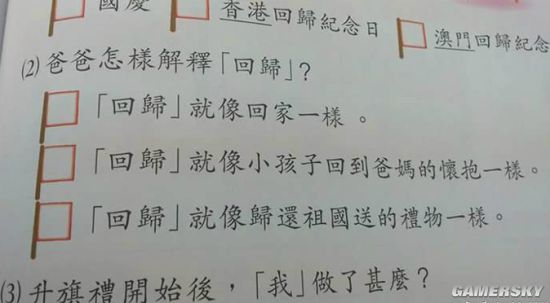 國慶
香港回歸紀念日
澳門回歸紀念
(2) 爸爸怎樣解釋「回歸」?
「回歸」就像回家一樣。
「回歸」就像小孩子回到爸媽的懷抱一樣。
「回歸」就像歸還祖國送的禮物一樣。
(3) 升旗禮開始後，「我」做了甚麼?
GAMERSKY